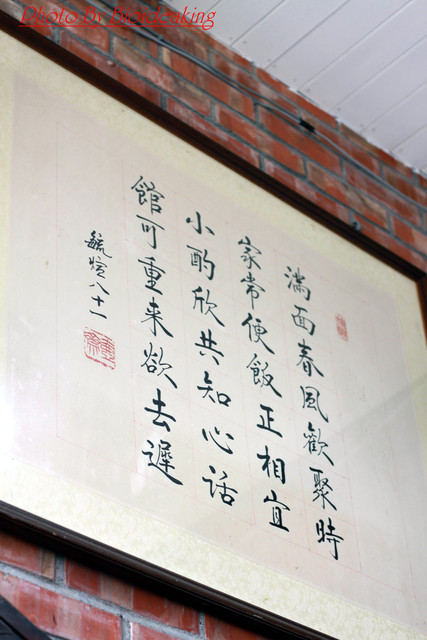 Photo By
滿面春風歡聚時
家常便飯正相宜
小酌欣共知心話
館可重來欲去遲
八十一